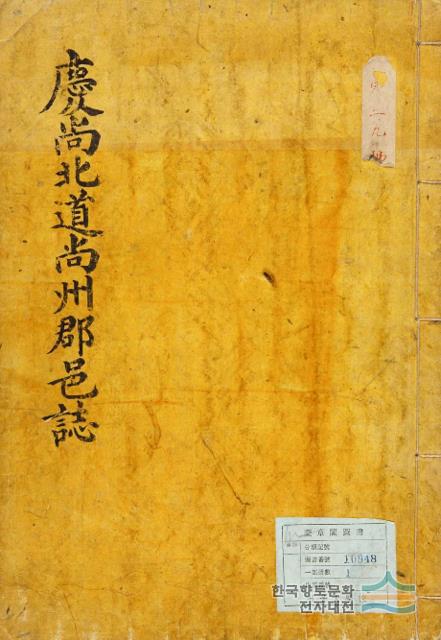 慶尚北道尚州郡邑誌
奎章閣圖書
分類記號
圖書番號 10948
一部冊數 1
한국향토문화
전자대전